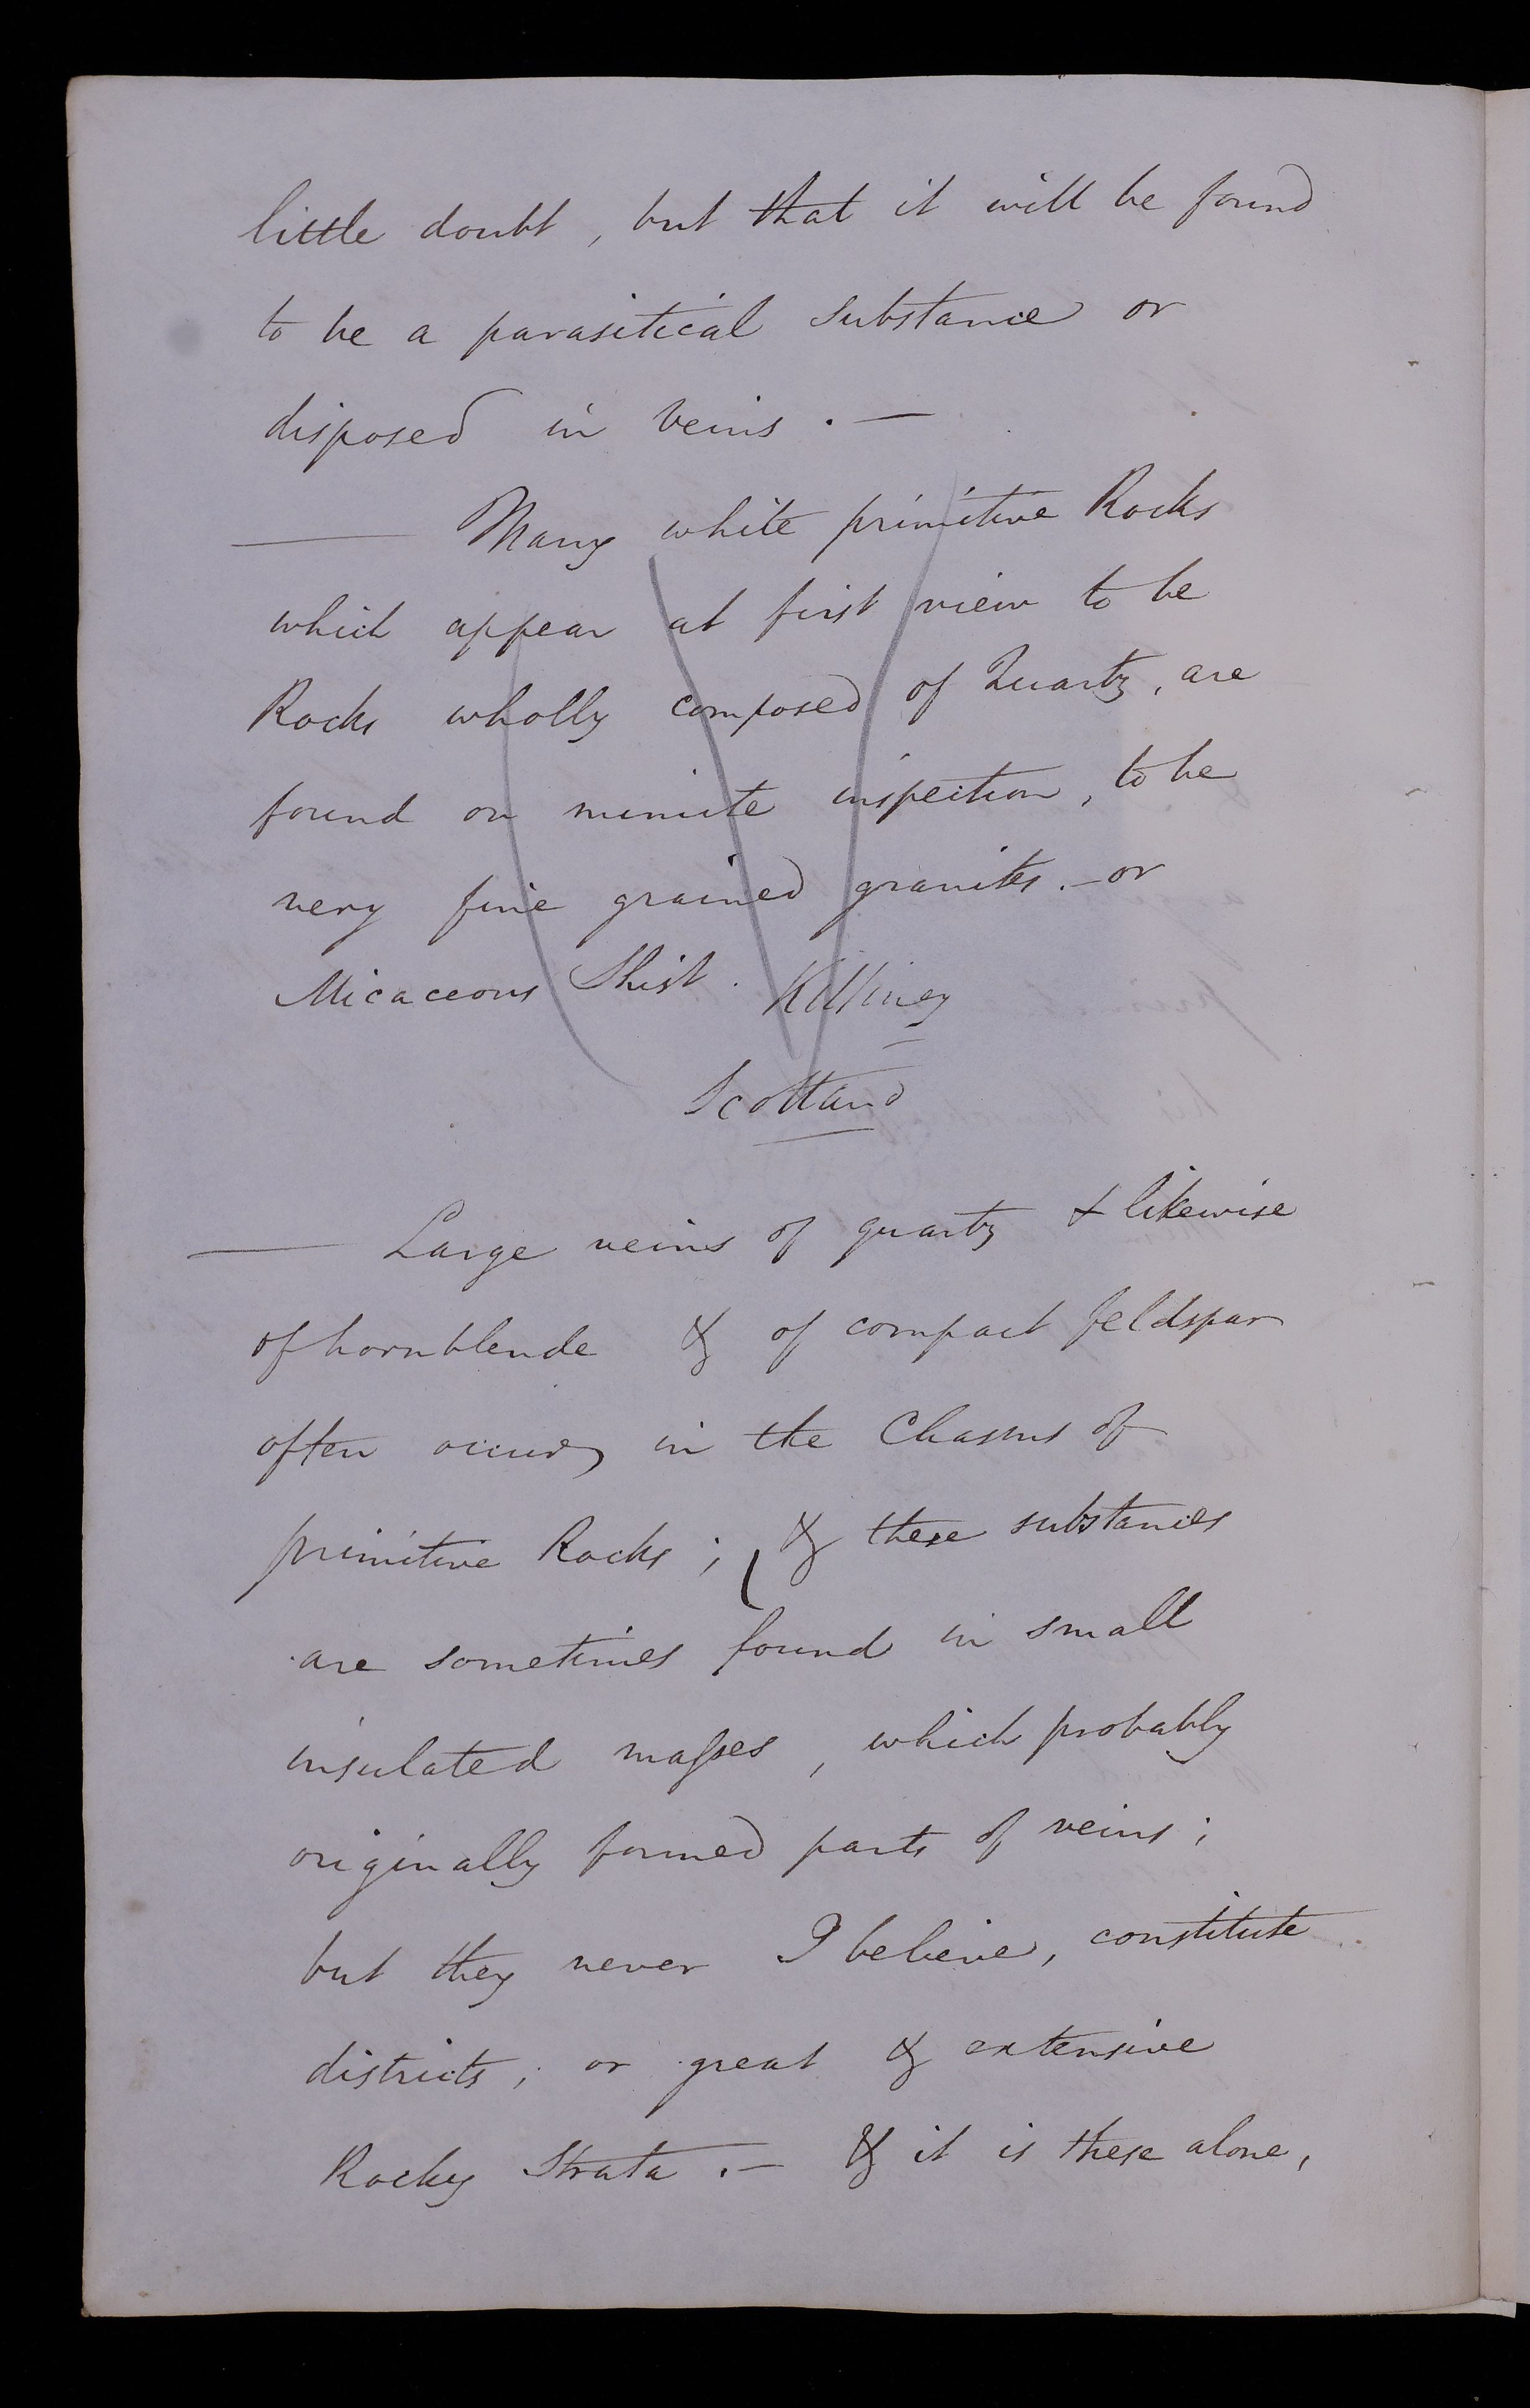 little doubt, but that it will be found
to be a parasitical substance or
disposed in veins. —
— Many white primitive Rocks
which appear at first view to be
Rocks wholly composed of Quartz, are
found on minute inspection, to be
very fine grained granites. – or
Micaceous Shist. Killiney
Scotland
— Large veins of quartz & likewise
of hornblende & of compact feldspar
often occur in the Chasms of
primitive Rocks; & these substances
are sometimes found in small
insulated masses, which probably
originally formed parts of veins;
but they never I believe, constitute
districts; or great & extensive
Rocky Strata. – & it is these alone,